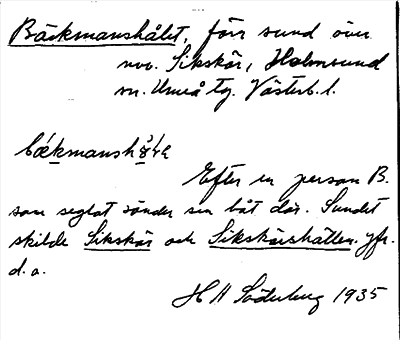 Bäckmanshålet, förr sund över
nv. Sikskär, Holmsund
sn. Umeå tg. Västerb. l.
bǽkmanshɔ̀lɐ
Efter en person B.
som seglat sönder sin båt där. Sundet
skilde Sikskär och Sikskärshällen. Jfr.
d.o.
H H Söderberg 1935